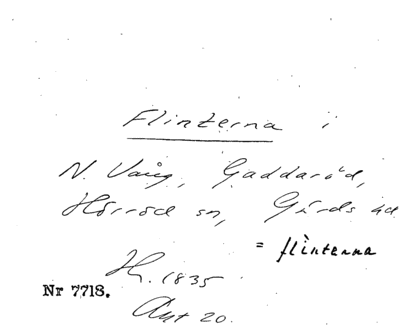 Flinterna i
N. Vång, Gaddaröd,
Hörröd sn, Gärds hd
= flinterna
H. 1835
Nr 7718.
Akt 20.